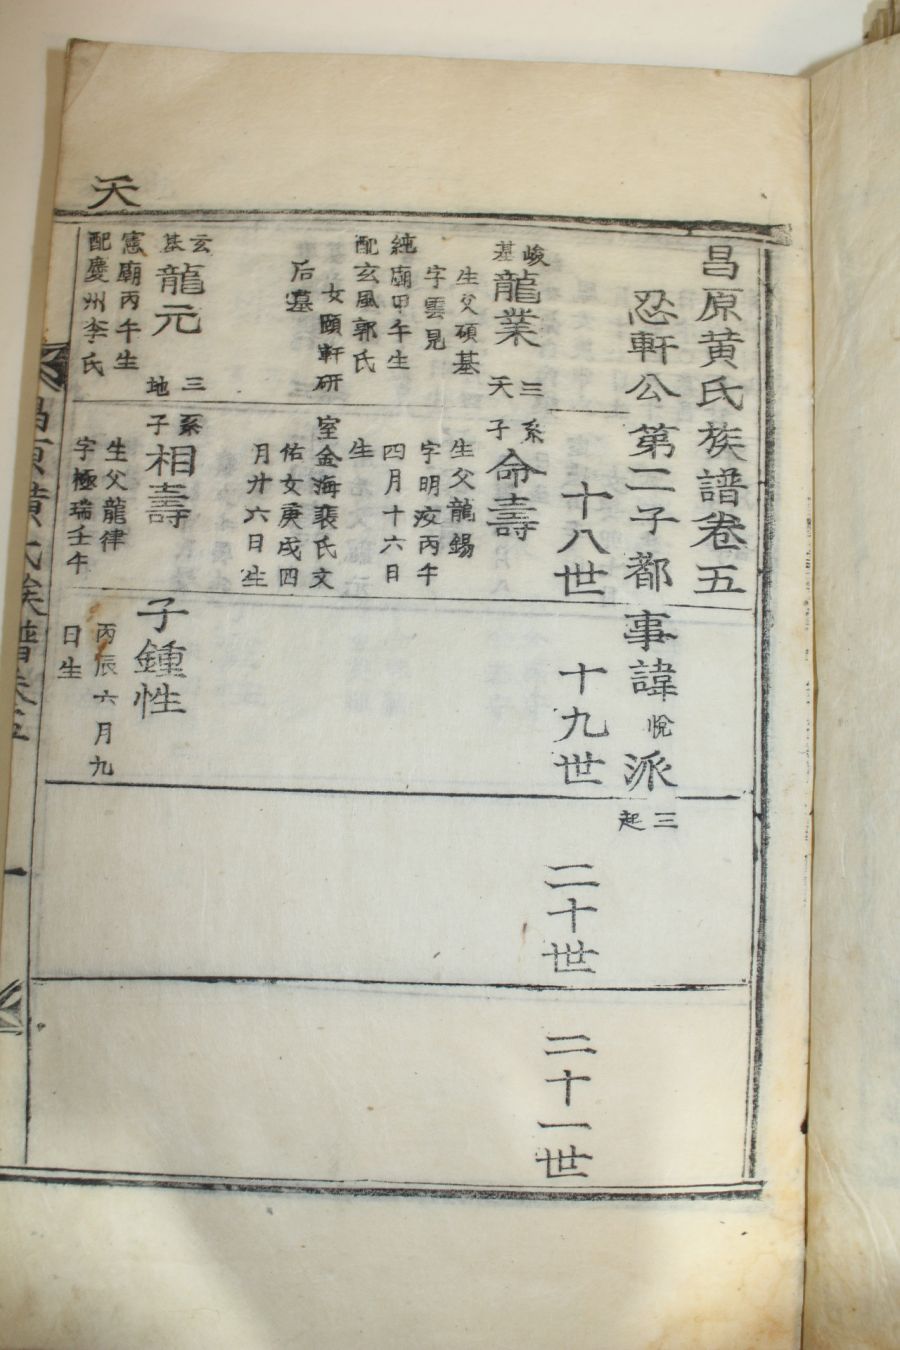 天
昌原黄氏族譜卷五
忍軒公第二子都事諱悅派
三
起
十八世
十九世
二十世
二十一世
峻
基
龍業
三
天
生父碩基
字雲見
純廟甲午生
配玄風郭氏
女頤軒研
后墓
系
子
命壽
生父龍錫
字明汝丙午
四月十六日
生
室金海裴氏文
佑女庚戌四
月廿六日生
玄
基
龍元
三
地
憲廟丙午生
配慶州李氏
系
子
相壽
生父龍律
字極瑞壬午
子鍾性
丙辰六月九
日生
昌原黄氏族譜卷五
一